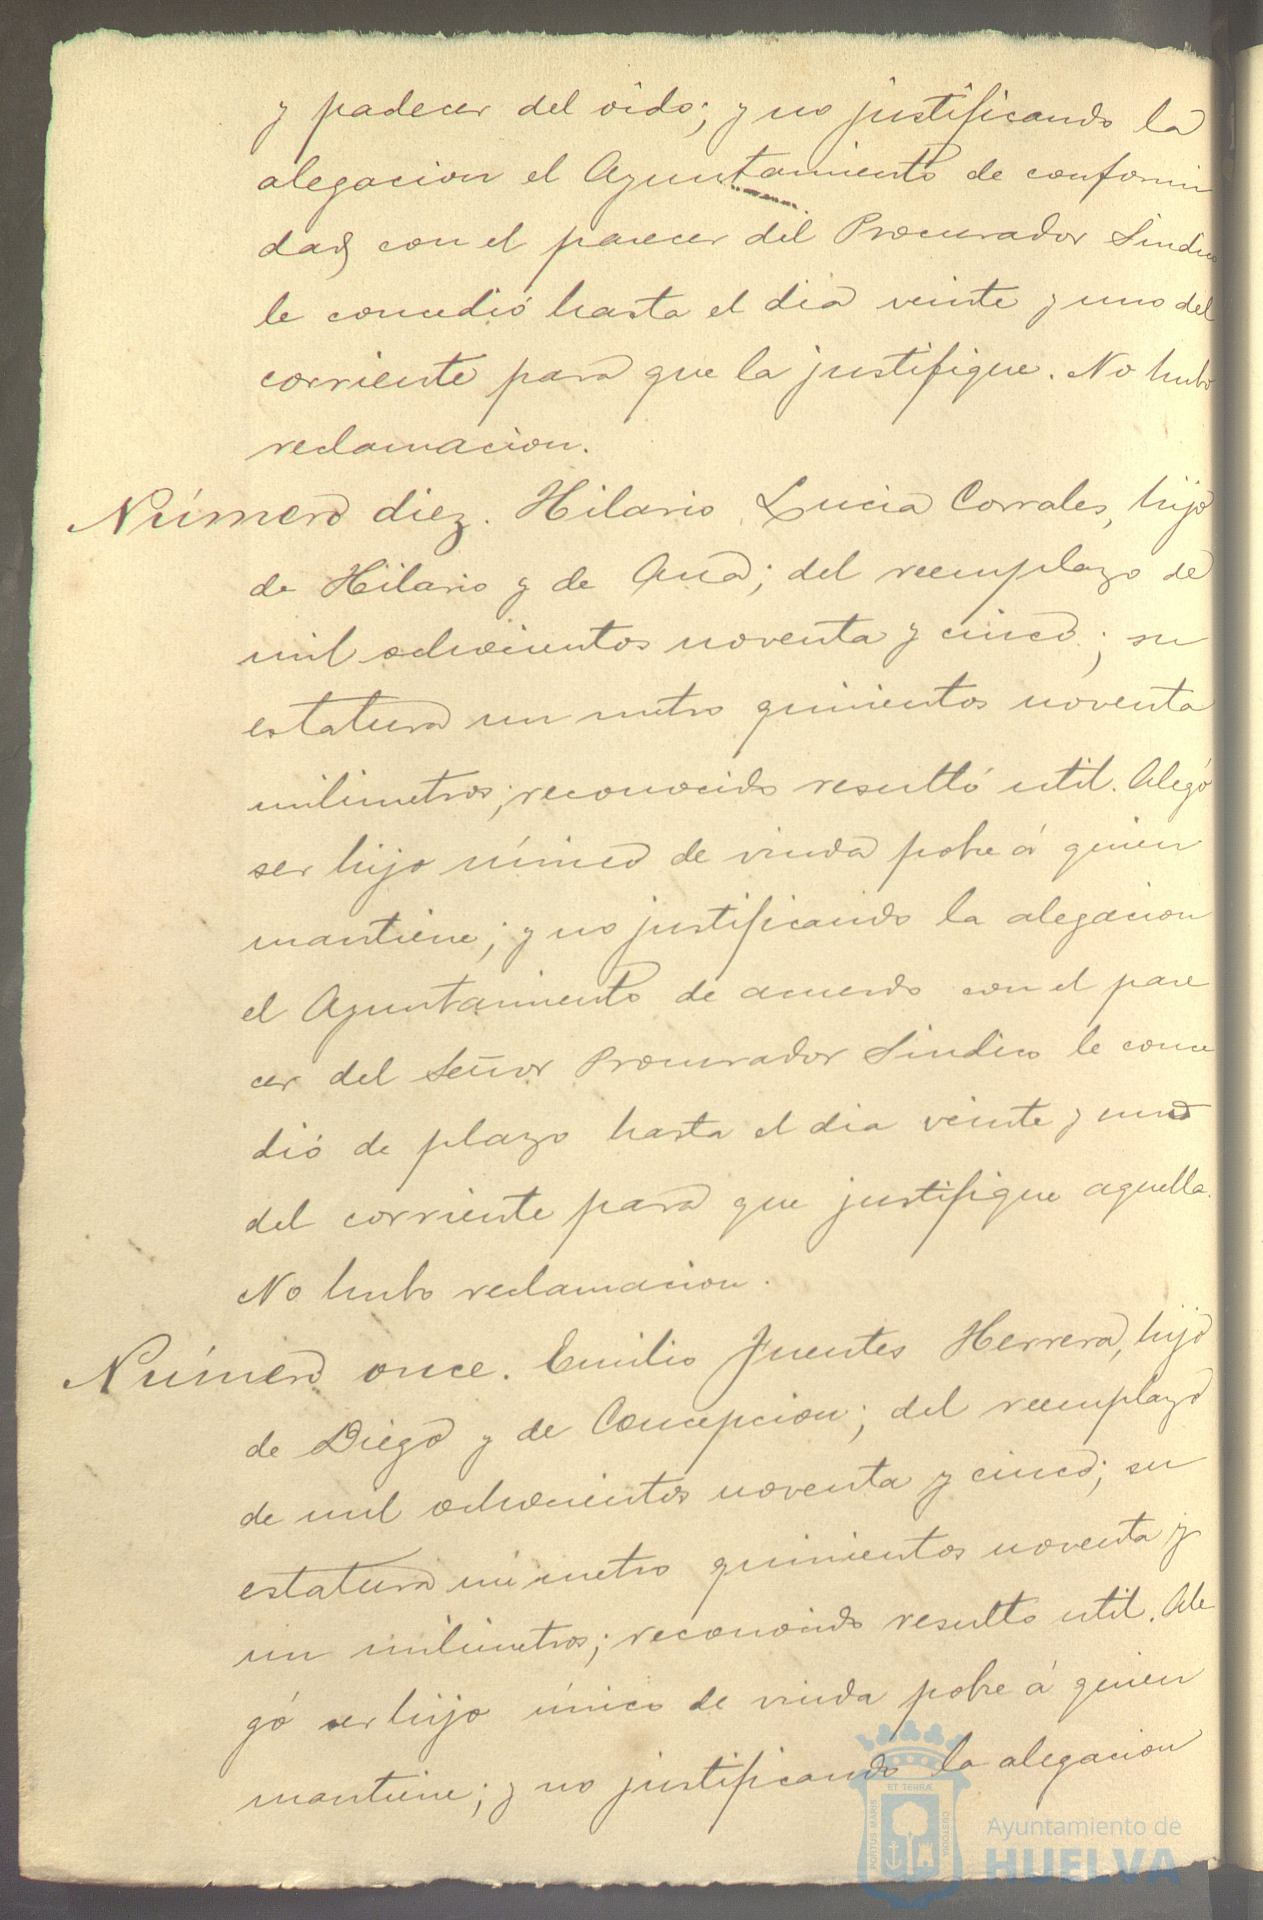 y padecer del oido; y no justificando la
alegacion el Ayuntamiento de conformi
dad con el parecer del Procurador Sindico
le concedió hasta el dia veinte y uno del
corriente para que la justifique. No hubo
reclamacion.
Número diez. Hilario Lucia Corrales, hijo
de Hilario y de Ana; del reemplazo de
mil ochocientos noventa y cinco; su
estatura un metro quinientos noventa
milimetros; reconocido resultó util. Alegó
ser hijo único de viuda pobre á quien
mantiene; y no justificando la alegacion
el Ayuntamiento de acuerdo con el pare
cer del Señor Procurador Sindico le conce
dió de plazo hasta el dia veinte y uno
del corriente para que justifique aquella.
No hubo reclamacion.
Número once. Emilio Fuentes Herrera, hijo
de Diego y de Concepcion; del reemplazo
de mil ochocientos noventa y cinco; su
estatura un metro quinientos noventa y
un milimetros; reconocido resulto util. Ale
gó ser hijo único de viuda pobre á quien
mantiene; y no justificando la alegacion
ET TERRÆ
PORTUS MARIS
CUSTODIA
Ayuntamiento de
HUELVA